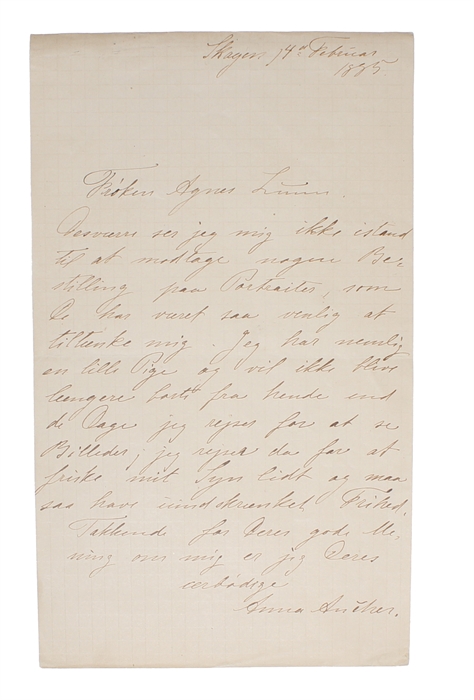 Skagen 14d Februar
1885.
Frøken Agnes Lunn.
Desværre ser jeg mig ikke istand
til at modtage nogen Be-
stilling paa Portraiter, som
De har været saa venlig at
tiltænke mig. Jeg har nemlig
en lille Pige og vil ikke blive
længere borte fra hende end
de Dage jeg rejser for at se
Billeder; jeg rejser da for at
friske mit Syn lidt og maa
saa have uindskrænket Frihed.
Takkende for Deres gode Me-
ning om mig er jeg Deres
ærbødige
Anna Ancher.